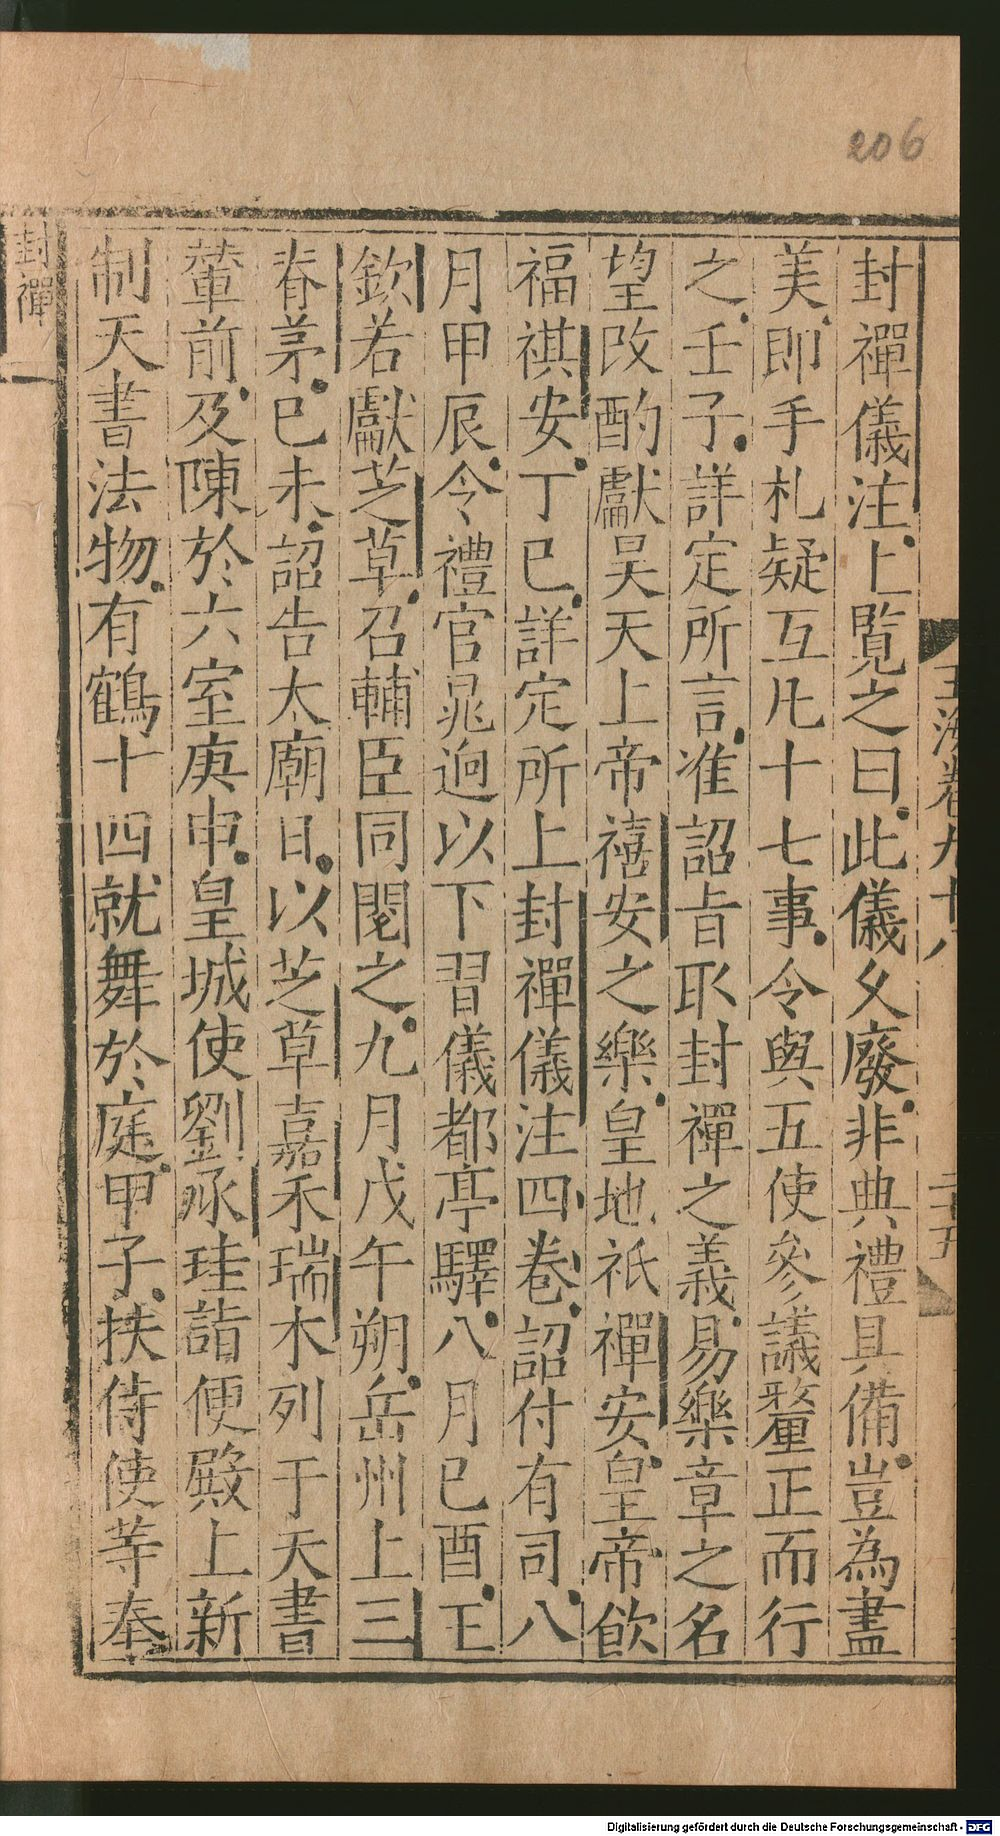 206
玉海卷九十八
二十五
封禪儀注上覧之曰此儀久廢非典禮具備豈為盡
美即手札疑互凡十七事令與五使參議釐正而行
之壬子詳定所言准詔㫖取封禪之義易樂章之名
望改酌獻昊天上帝禧安之樂皇地祇禪安皇帝飲
福祺安丁巳詳定所上封禪儀注四卷詔付有司八
月甲辰令禮官晁迥以下習儀都亭驛八月已酉王
欽若獻芝草召輔臣同閱之九月戊午朔岳州上三
脊茅已未詔告太廟日以芝草嘉禾瑞木列于天書
輦前及陳於六室庚申皇城使劉承珪詣便殿上新
制天書法物有鶴十四就舞於庭甲子扶侍使等奉
封禪
Digitalisierung gefördert durch die Deutsche Forschungsgemeinschaft - DFG